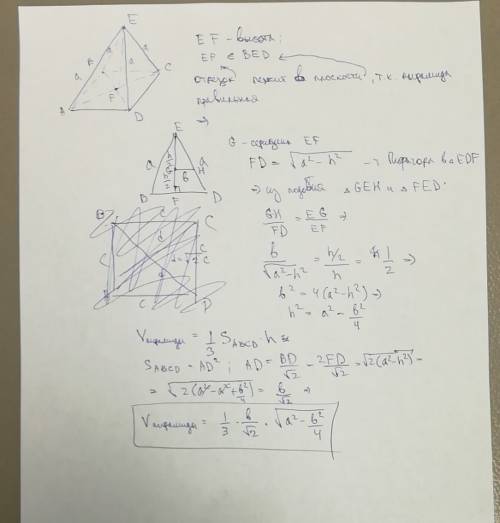 E
EF - высота;
EF ∈ BED
отрезок лежит в плоскости, т.к. пирамида
правильная
⇒
a
a
C
F
A
D
E
G - середина EF
FD = √(a² - h²) → Пифагора в △EDF
⇒ из подобия △GEH и △FED:
a
a
G
b
H
D
F
D
GH/FD = EG/EF ⇒
b/√(a² - h²) = (h/2)/h = 1/2 ⇒
b² = 4(a² - h²) ⇒
h² = a² - b²/4
B
C
C
d
d = √2 C
C
D
Vпирамиды = 1/3 S_ABCD · h
S_ABCD = AD² ; AD = BD/√2 = 2FD/√2 = √2(a² - h²) =
= √(2(a² - a² + b²/4)) = b/√2 ⇒
Vпирамиды = 1/3 · b/√2 · √(a² - b²/4)